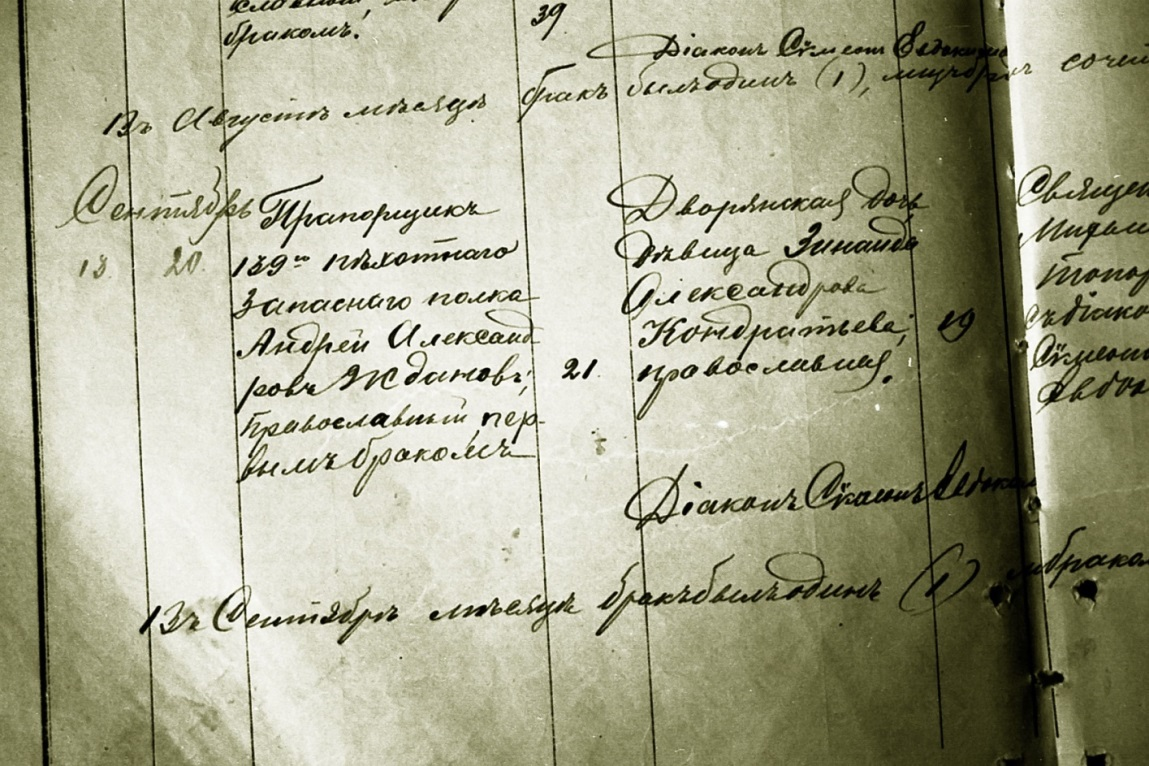 бракомъ.
39
Діаконъ Сѵмеонъ
Въ Августѣ мѣсяцѣ бракъ былъ одинъ (1),
Сентябрь
13. 20.
Прапорщикъ
139го пѣхотнаго
Запаснаго полка
Андрей Александ
ровъ Ждановъ,
православный, пер-
вымъ бракомъ
21.
Дворянская дочь
дѣвица Зинаида
Александрова
Кондратьева,
православная.
19
Діаконъ Сѵмеонъ
Въ Сентябрѣ мѣсяцѣ бракъ былъ одинъ (1)